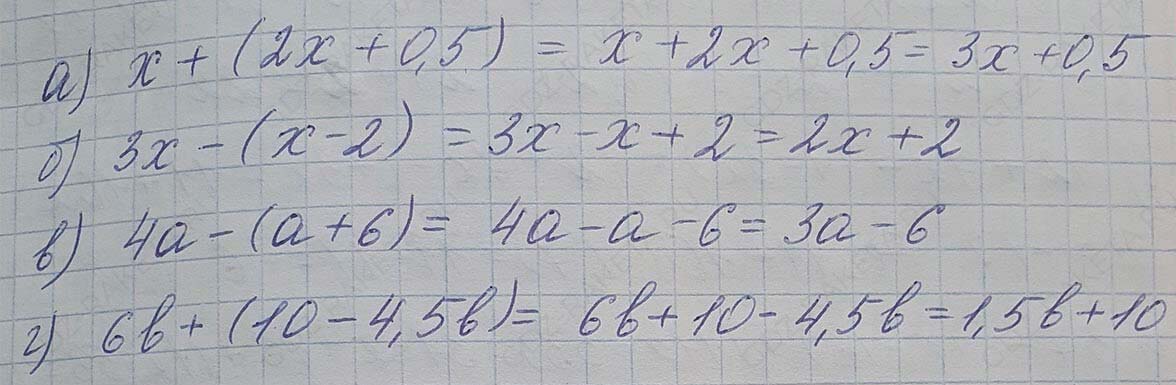 а) x + (2x + 0,5) = x + 2x + 0,5 = 3x + 0,5
б) 3x - (x - 2) = 3x - x + 2 = 2x + 2
в) 4a - (a + 6) = 4a - a - 6 = 3a - 6
г) 6b + (10 - 4,5b) = 6b + 10 - 4,5b = 1,5b + 10